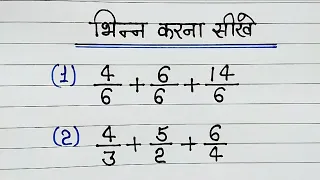 भिन्न करना सीखे
(1) 4/6 + 6/6 + 14/6
(2) 4/3 + 5/2 + 6/4